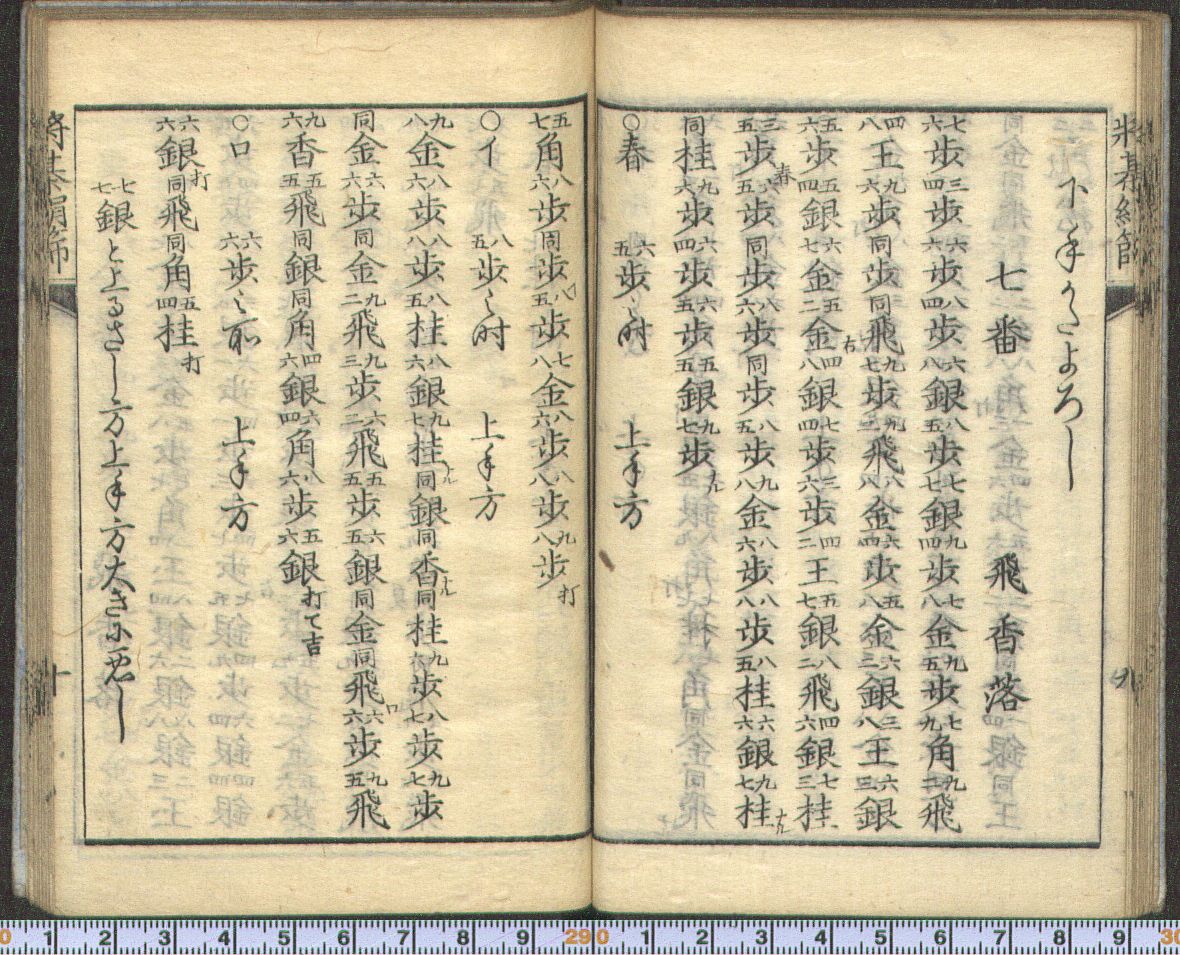 将棊絹篩
下手かたよろし
七番　飛香落
七六歩 三四歩 六六歩 八四歩 六八銀 八五歩 七七銀 九四歩 七八金 九五歩 七九角 九二飛
四八王 九六歩 同歩 同飛 九七歩 九二飛 八八金 六四歩 五八金 六二銀 三八王 六三銀
五六歩 五四銀 六七金 五二金右 四八銀 七四歩 三六歩 四二王 五七銀 八二飛 四六銀 七三桂
三五歩春 六五歩 同歩 八六歩 同歩 八五歩 九八金 八六歩 八八歩 八五桂 六六銀 九七桂ナル
同桂 九六歩 六四歩 六五歩 五五銀 九七歩ナル
○春　六五歩ノ時　上手方
九
五七角 八六歩 同歩 八五歩イ 七八金 八六歩 八八歩 九八歩打
○イ　八五歩ノ時　上手方
九八金 八六歩 八八歩 八五桂 八六銀 九七桂ナル 同銀 同香ナル 同桂 九六歩 八七歩 九七歩
同金 六六歩 同金 九二飛 九三歩 六三飛 五五歩 六五銀 同金 同飛ロ 六六歩 九五飛
九六香 五五飛 同銀 同角 四六銀 六四角 八六歩 五六銀打て吉
○ロ　六六歩ノ所　上手方
六六銀打 同飛 同角 五四桂打
七七銀と上るさし方上手方大きに悪し
将棊絹篩
十